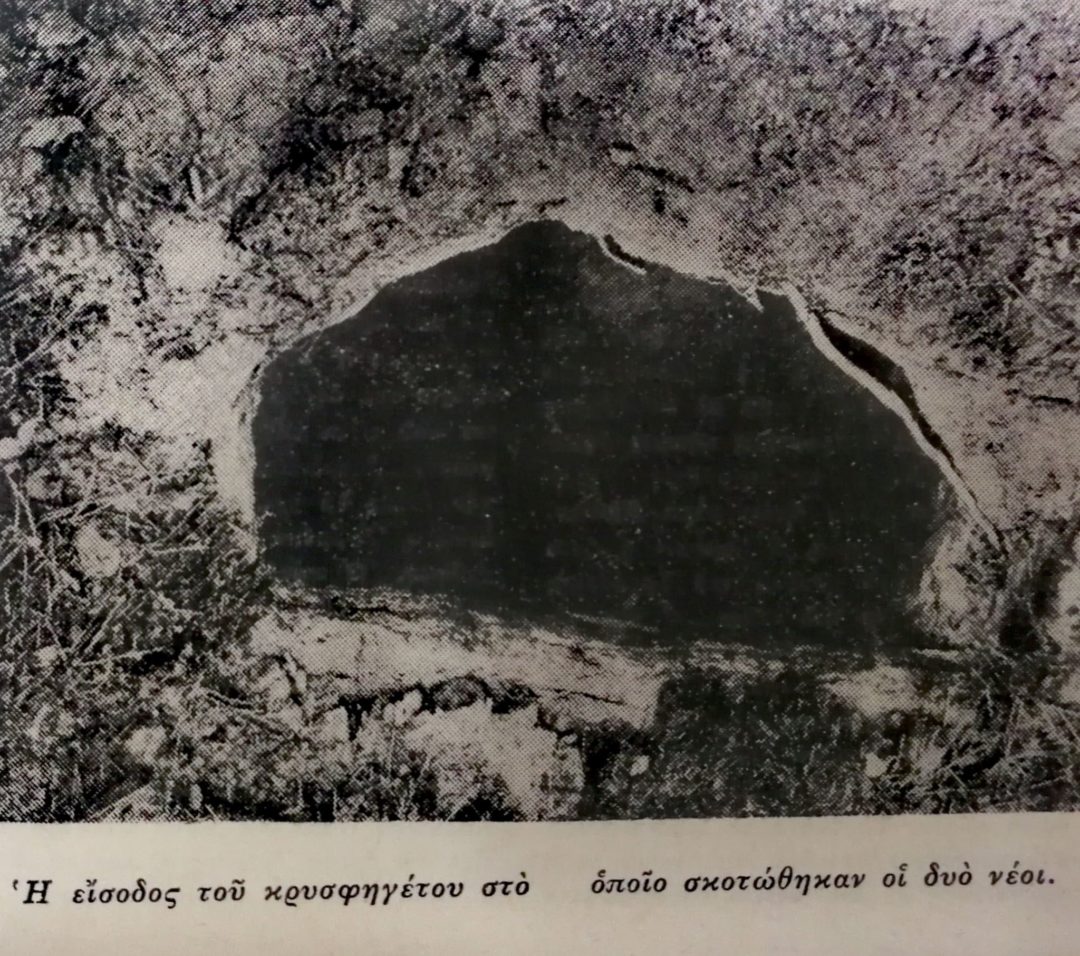 Ἡ εἴσοδος τοῦ κρυσφηγέτου στὸ ὁποῖο σκοτώθηκαν οἱ δυὸ νέοι.